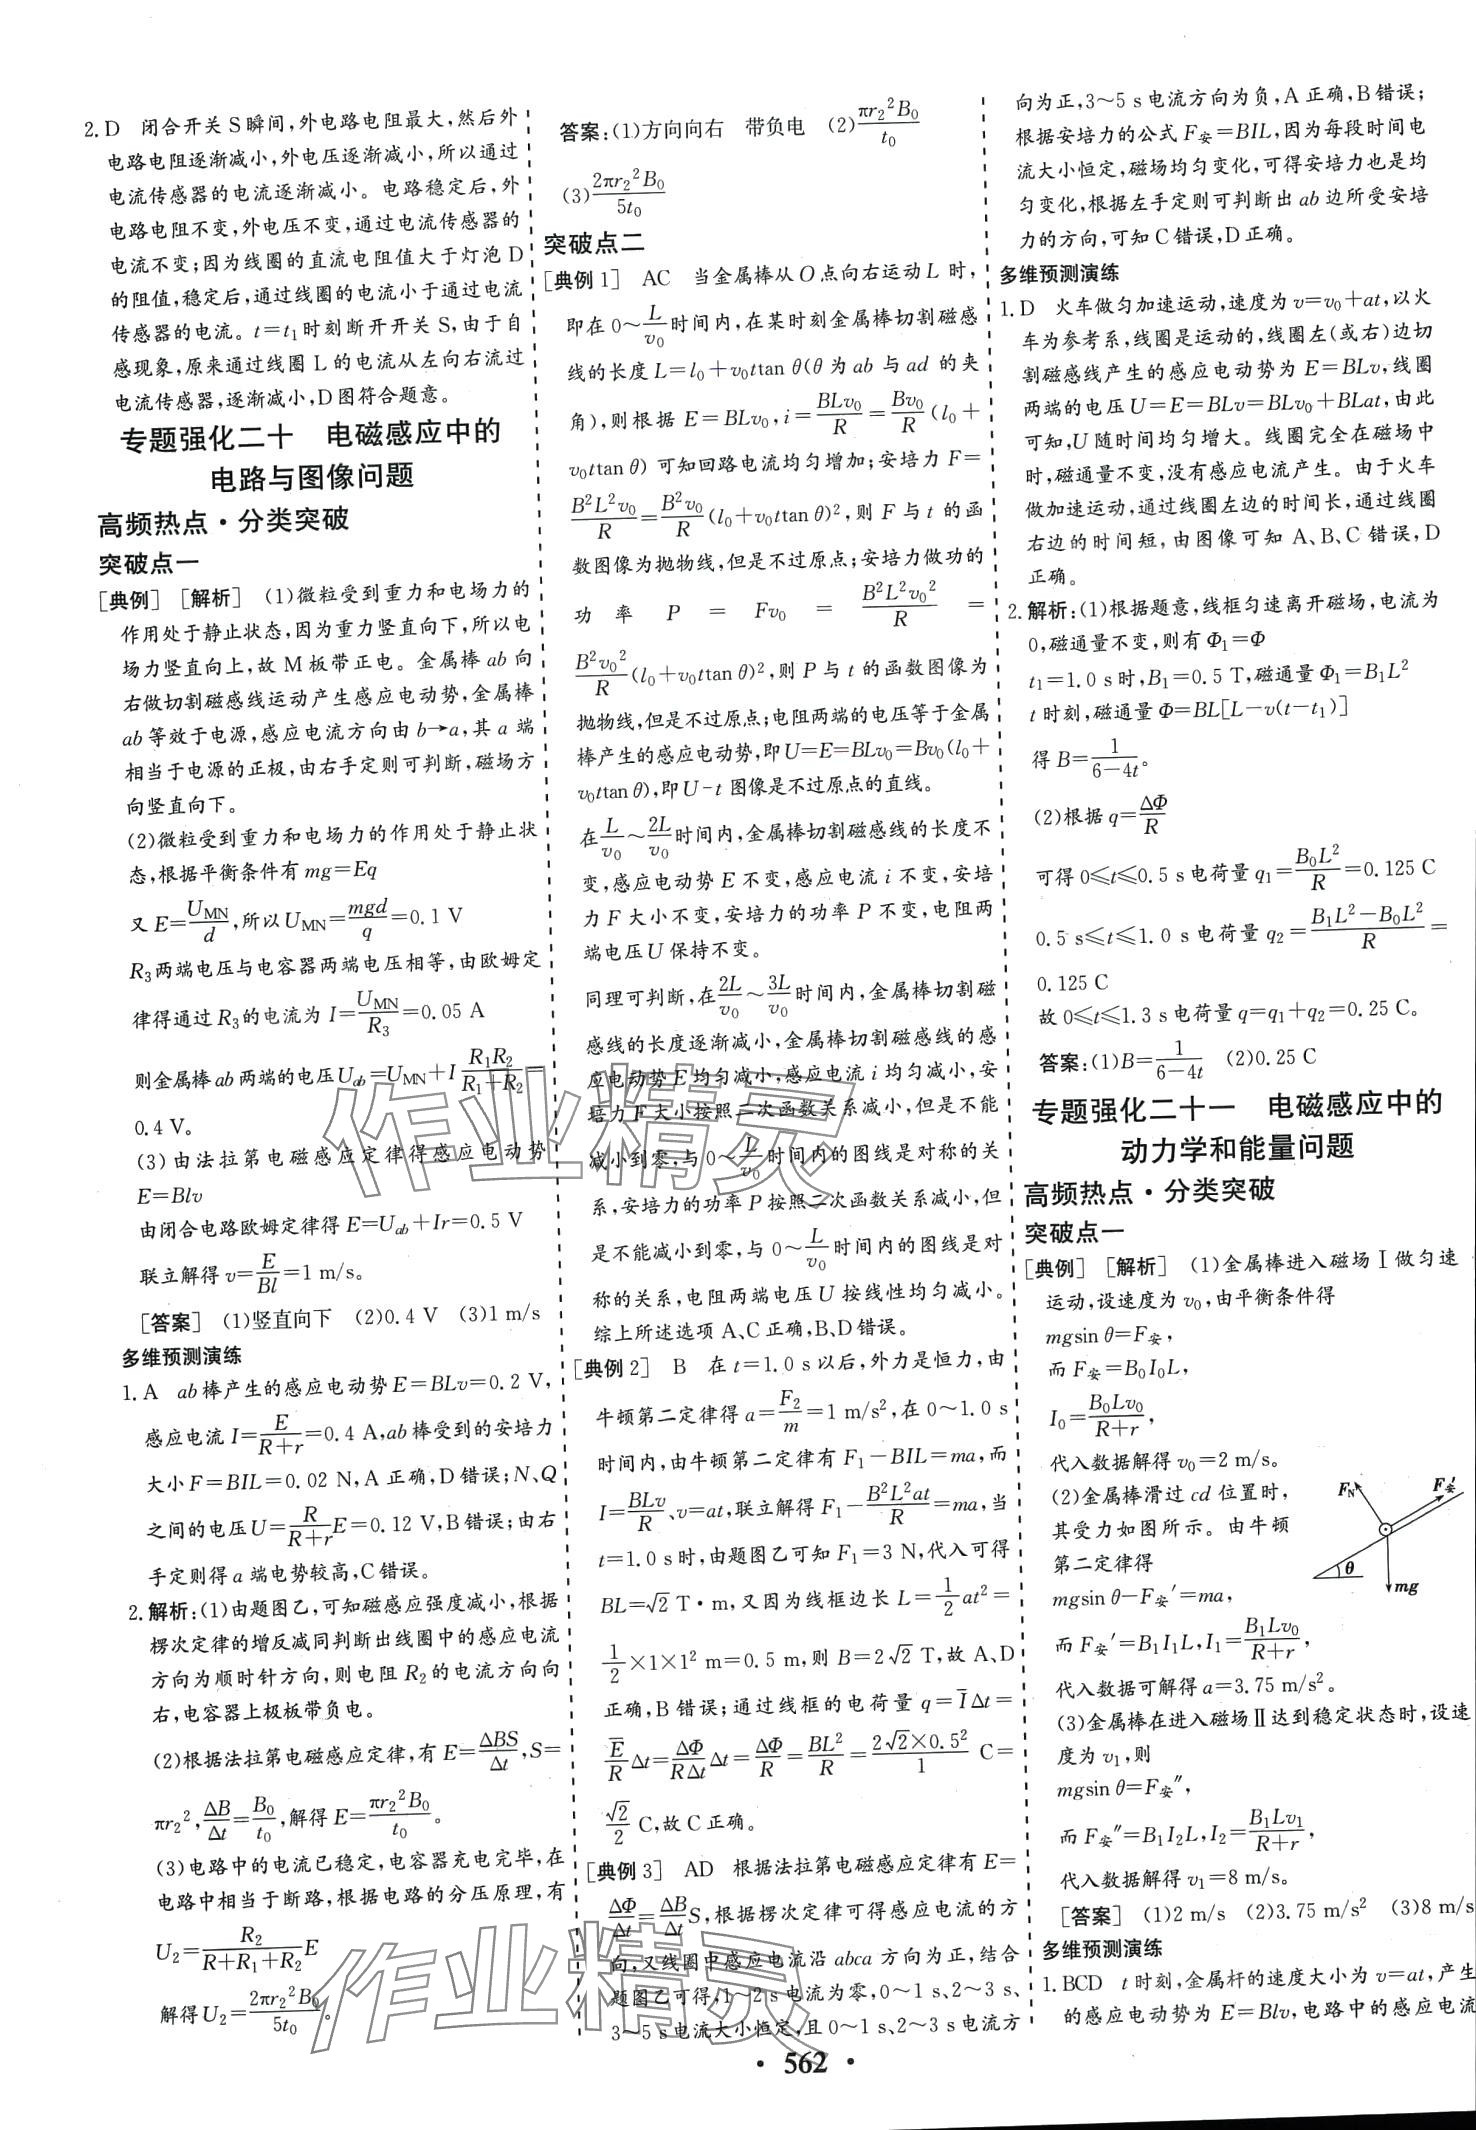 2. D 闭合开关S瞬间,外电路电阻最大,然后外
电路电阻逐渐减小,外电压逐渐减小,所以通过
电流传感器的电流逐渐减小。电路稳定后,外
电路电阻不变,外电压不变,通过电流传感器的
电流不变;因为线圈的直流电阻值大于灯泡D
的阻值,稳定后,通过线圈的电流小于通过电流
传感器的电流。t=t₁时刻断开开关S,由于自
感现象,原来通过线圈L的电流从左向右流过
电流传感器,逐渐减小,D图符合题意。
专题强化二十 电磁感应中的
电路与图像问题
高频热点·分类突破
突破点一
[典例] [解析] (1)微粒受到重力和电场力的
作用处于静止状态,因为重力竖直向下,所以电
场力竖直向上,故M板带正电。金属棒ab向
右做切割磁感线运动产生感应电动势,金属棒
ab等效于电源,感应电流方向由b→a,其a端
相当于电源的正极,由右手定则可判断,磁场方
向竖直向下。
(2)微粒受到重力和电场力的作用处于静止状
态,根据平衡条件有mg=Eq
又E=U_MN/d,所以U_MN=mgd/q=0.1 V
R₃两端电压与电容器两端电压相等,由欧姆定
律得通过R₃的电流为I=U_MN/R₃=0.05 A
则金属棒ab两端的电压U_ab=U_MN+I R₁R₂/(R₁+R₂)=
0.4 V。
(3)由法拉第电磁感应定律得感应电动势
E=Blv
由闭合电路欧姆定律得E=U_ab+Ir=0.5 V
联立解得v=E/Bl=1 m/s。
[答案] (1)竖直向下 (2)0.4 V (3)1 m/s
多维预测演练
1. A ab棒产生的感应电动势E=BLv=0.2 V,
感应电流I=E/(R+r)=0.4 A,ab棒受到的安培力
大小F=BIL=0.02 N,A正确,D错误;N、Q
之间的电压U=R/(R+r)E=0.12 V,B错误;由右
手定则得a端电势较高,C错误。
2. 解析:(1)由题图乙,可知磁感应强度减小,根据
楞次定律的增反减同判断出线圈中的感应电流
方向为顺时针方向,则电阻R₂的电流方向向
右,电容器上极板带负电。
(2)根据法拉第电磁感应定律,有E=ΔBS/Δt,S=
πr₂²,ΔB/Δt=B₀/t₀,解得E=πr₂²B₀/t₀。
(3)电路中的电流已稳定,电容器充电完毕,在
电路中相当于断路,根据电路的分压原理,有
U₂=R₂/(R+R₁+R₂)E
解得U₂=2πr₂²B₀/5t₀。
答案:(1)方向向右 带负电 (2)πr₂²B₀/t₀
(3)2πr₂²B₀/5t₀
突破点二
[典例1] AC 当金属棒从O点向右运动L时,
即在0~L/v₀时间内,在某时刻金属棒切割磁感
线的长度L=l₀+v₀ttan θ(θ为ab与ad的夹
角),则根据E=BLv₀,i=BLv₀/R=Bv₀/R(l₀+
v₀ttan θ)可知回路电流均匀增加;安培力F=
B²L²v₀/R=B²v₀/R(l₀+v₀ttan θ)²,则F与t的函
数图像为抛物线,但是不过原点;安培力做功的
功率P=Fv₀=B²L²v₀²/R=
B²v₀²/R(l₀+v₀ttan θ)²,则P与t的函数图像为
抛物线,但是不过原点;电阻两端的电压等于金属
棒产生的感应电动势,即U=E=BLv₀=Bv₀(l₀+
v₀ttan θ),即U-t图像是不过原点的直线。
在L/v₀~2L/v₀时间内,金属棒切割磁感线的长度不
变,感应电动势E不变,感应电流i不变,安培
力F大小不变,安培力的功率P不变,电阻两
端电压U保持不变。
同理可判断,在2L/v₀~3L/v₀时间内,金属棒切割磁
感线的长度逐渐减小,金属棒切割磁感线的感
应电动势E均匀减小,感应电流i均匀减小,安
培力F大小按照二次函数关系减小,但是不能
减小到零,与0~L/v₀时间内的图线是对称的关
系,安培力的功率P按照二次函数关系减小,但
是不能减小到零,与0~L/v₀时间内的图线是对
称的关系,电阻两端电压U按线性均匀减小。
综上所述选项A、C正确,B、D错误。
[典例2] B 在t=1.0 s以后,外力是恒力,由
牛顿第二定律得a=F₂/m=1 m/s²,在0~1.0 s
时间内,由牛顿第二定律有F₁-BIL=ma,而
I=BLv/R、v=at,联立解得F₁-B²L²at/R=ma,当
t=1.0 s时,由题图乙可知F₁=3 N,代入可得
BL=√2 T·m,又因为线框边长L=1/2at²=
1/2×1×1² m=0.5 m,则B=2√2 T,故A、D
正确,B错误;通过线框的电荷量q=I̅Δt=
E̅/RΔt=ΔΦ/RΔtΔt=ΔΦ/R=BL²/R=2√2×0.5²/1 C=
√2/2 C,故C正确。
[典例3] AD 根据法拉第电磁感应定律有E=
ΔΦ/Δt=ΔB/ΔtS,根据楞次定律可得感应电流的方
向,又线圈中感应电流沿abca方向为正,结合
题图乙可得,1~2 s电流为零,0~1 s、2~3 s、
3~5 s电流大小恒定,且0~1 s、2~3 s电流方
向为正,3~5 s电流方向为负,A正确,B错误;
根据安培力的公式F安=BIL,因为每段时间电
流大小恒定,磁场均匀变化,可得安培力也是均
匀变化,根据左手定则可判断出ab边所受安培
力的方向,可知C错误,D正确。
多维预测演练
1. D 火车做匀加速运动,速度为v=v₀+at,以火
车为参考系,线圈是运动的,线圈左(或右)边切
割磁感线产生的感应电动势为E=BLv,线圈
两端的电压U=E=BLv=BLv₀+BLat,由此
可知,U随时间均匀增大。线圈完全在磁场中
时,磁通量不变,没有感应电流产生。由于火车
做加速运动,通过线圈左边的时间长,通过线圈
右边的时间短,由图像可知A、B、C错误,D
正确。
2. 解析:(1)根据题意,线框匀速离开磁场,电流为
0,磁通量不变,则有Φ₁=Φ
t₁=1.0 s时,B₁=0.5 T,磁通量Φ₁=B₁L²
t时刻,磁通量Φ=BL[L-v(t-t₁)]
得B=1/(6-4t)。
(2)根据q=ΔΦ/R
可得0≤t≤0.5 s电荷量q₁=B₀L²/R=0.125 C
0.5 s≤t≤1.0 s电荷量q₂=(B₁L²-B₀L²)/R=
0.125 C
故0≤t≤1.3 s电荷量q=q₁+q₂=0.25 C。
答案:(1)B=1/(6-4t) (2)0.25 C
专题强化二十一 电磁感应中的
动力学和能量问题
高频热点·分类突破
突破点一
[典例] [解析] (1)金属棒进入磁场Ⅰ做匀速
运动,设速度为v₀,由平衡条件得
mgsin θ=F安,
而F安=B₀I₀L,
I₀=B₀Lv₀/(R+r),
代入数据解得v₀=2 m/s。
(2)金属棒滑过cd位置时,
其受力如图所示。由牛顿
第二定律得
mgsin θ-F安′=ma,
而F安′=B₁I₁L,I₁=B₁Lv₀/(R+r),
代入数据可解得a=3.75 m/s²。
F_N
F安′
θ
mg
(3)金属棒在进入磁场Ⅱ达到稳定状态时,设速
度为v₁,则
mgsin θ=F安″,
而F安″=B₁I₂L,I₂=B₁Lv₁/(R+r),
代入数据解得v₁=8 m/s。
[答案] (1)2 m/s (2)3.75 m/s² (3)8 m/s
多维预测演练
1. BCD t时刻,金属杆的速度大小为v=at,产生
的感应电动势为E=Blv,电路中的感应电流
· 562 ·
作业精灵
作业精灵